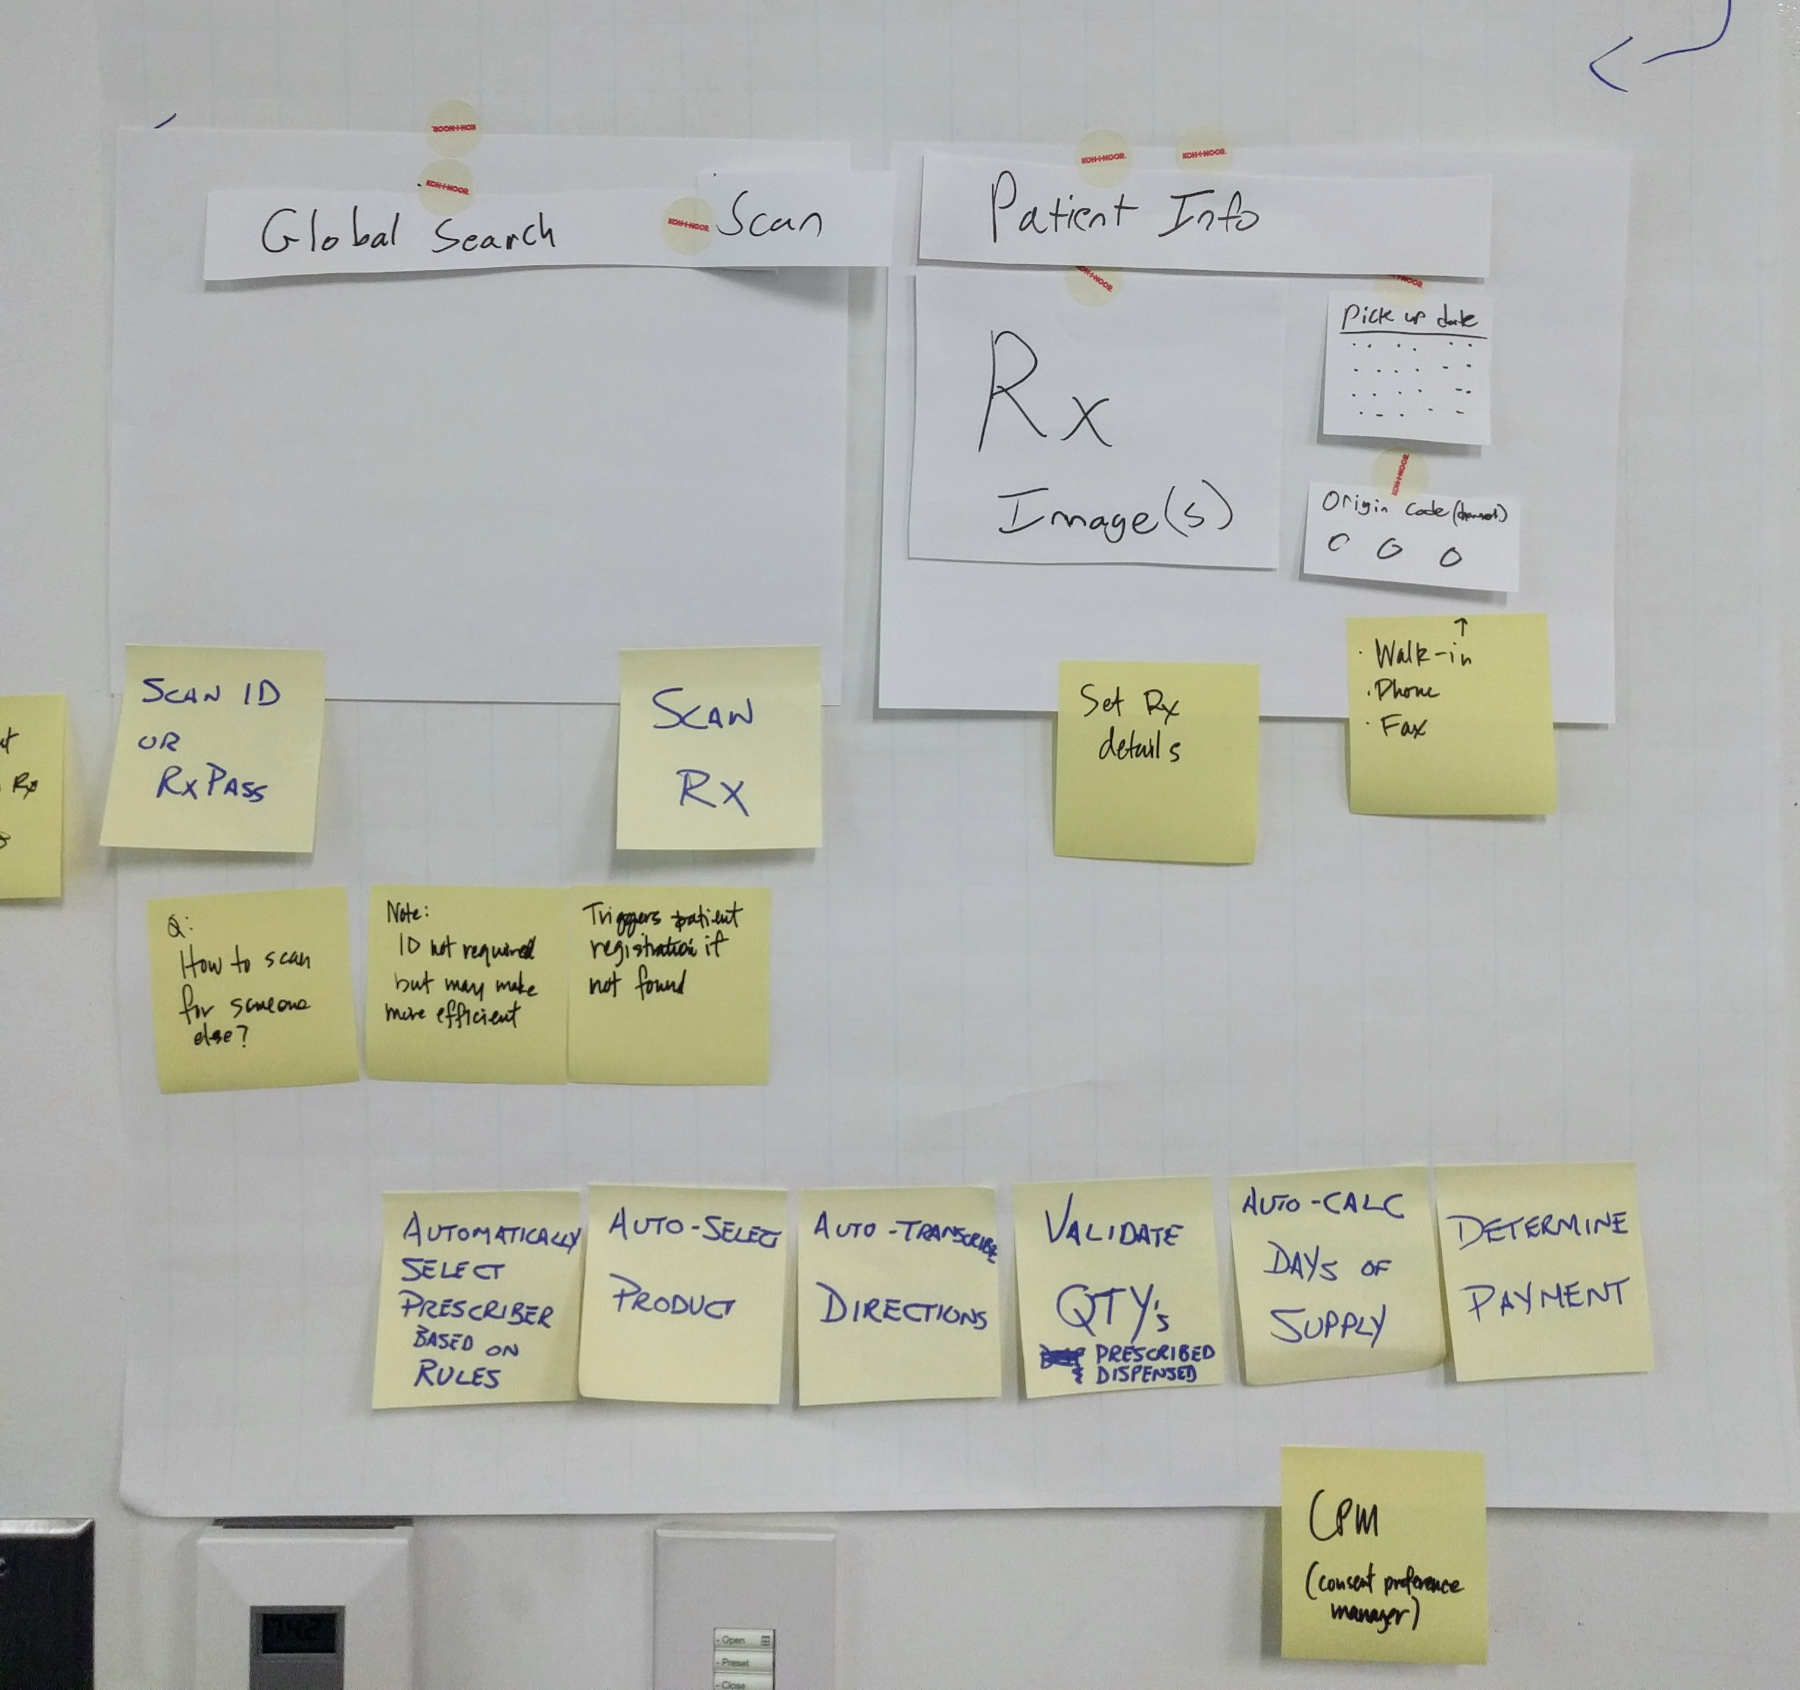 KOH-I-NOOR
KOH-I-NOOR
Global Search
KOH-I-NOOR
Scan
KOH-I-NOOR
KOH-I-NOOR
Patient Info
KOH-I-NOOR
Rx
Image(s)
Pick up date
KOH-I-NOOR
Origin Code (channel)
Rx
SCAN ID
OR
RXPASS
SCAN
RX
Set Rx
details
· Walk-in
· Phone
· Fax
Q:
How to scan
for someone
else?
Note:
ID not required
but may make
more efficient
Triggers patient
registration if
not found
AUTOMATICALLY
SELECT
PRESCRIBER
BASED ON
RULES
AUTO-SELECT
PRODUCT
AUTO-TRANSCRIBE
DIRECTIONS
VALIDATE
QTY's
PRESCRIBED
& DISPENSED
AUTO-CALC
DAYS OF
SUPPLY
DETERMINE
PAYMENT
CPM
(consent preference
manager)
- Open
- Preset
- Close